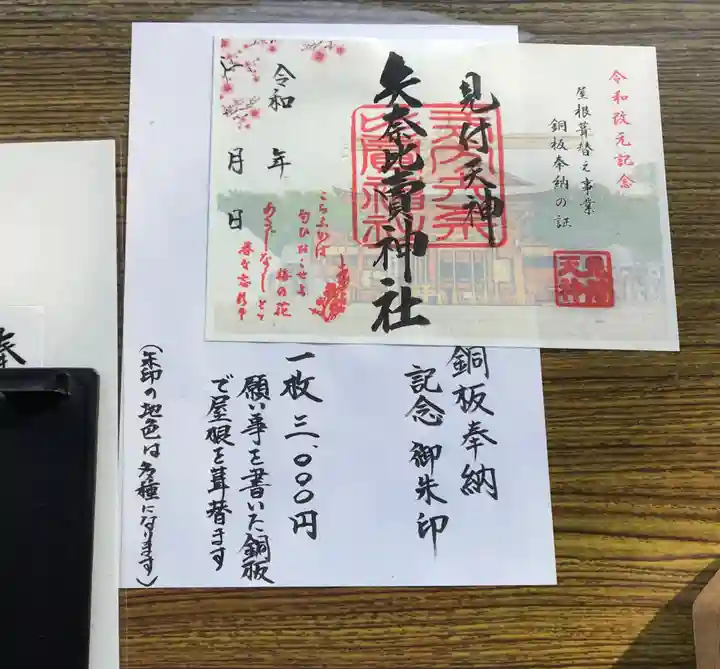 令和改元記念
屋根葺替え事業
銅板奉納の証
見付天神
矢奈比賣神社
令和　年
月　日
こちふかば
匂ひおこせよ
梅の花
あるじなしとて
春な忘れそ
銅板奉納
記念御朱印
一枚 三、000円
願い事を書いた銅板
で屋根を葺替ます
(朱印の地色は多種になります)
奉